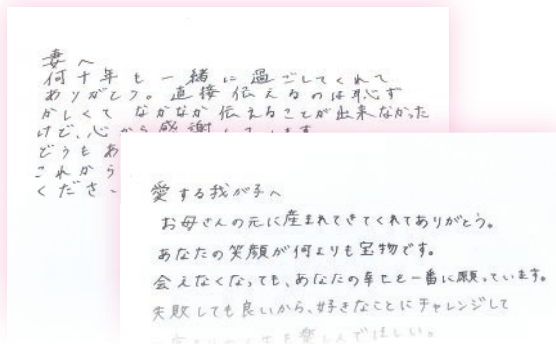 妻へ
何十年も一緒に過ごしてくれて
ありがとう。直接伝えるのは恥ず
かしくて なかなか伝えることが出来なかった
けど、心から感謝しています
どうもあ
これから
くださ
愛する我が子へ
お母さんの元に産まれてきてくれてありがとう。
あなたの笑顔が何よりも宝物です。
会えなくなっても、あなたの幸せを一番に願っています。
失敗しても良いから、好きなことにチャレンジして
を楽しんでほしい。